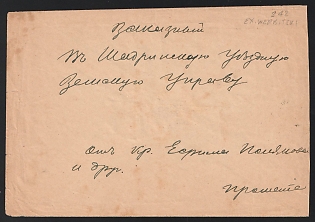 Заказный
Въ Шадринскую Уѣздную
Земскую Управу
отъ кр. Ефима Полякова
и др.
Прошенiе